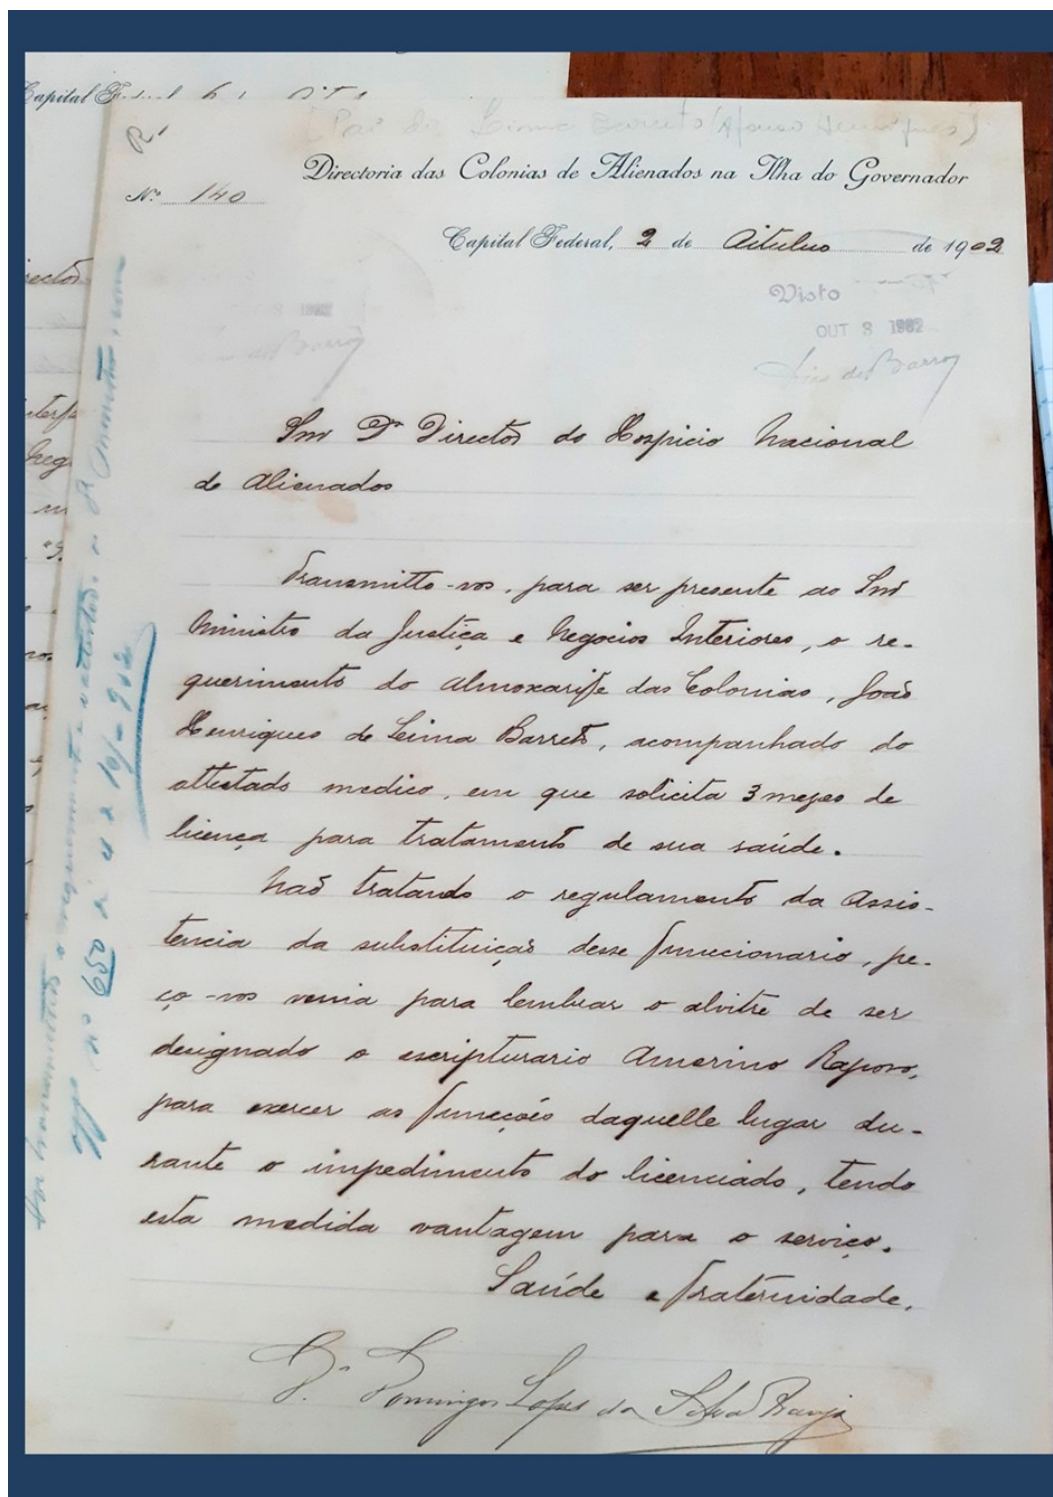 Capital Federal
[Pai de Lima Barreto (Afonso Henriques)]
R.
Directoria das Colonias de Alienados na Ilha do Governador
Nº 140
Capital Federal, 2 de Outubro de 1902
Visto
OUT 3 1902
de Barros
Snr Dr Director do Hospicio Nacional
de Alienados
Transmitto-vos, para ser presente ao Snr
Ministro da Justiça e Negocios Interiores, o re-
querimento do Almoxarife das Colonias, João
Henriques de Lima Barreto, acompanhado do
attestado medico, em que solicita 3 mezes de
licença para tratamento de sua saúde.
Não tratando o regulamento da Assis-
tencia da substituição desse funccionario, pe-
ço-vos venia para lembrar o alvitre de ser
designado o escripturario Amerino Raposo,
para exercer as funcções daquelle lugar du-
rante o impedimento do licenciado, tendo
esta medida vantagem para o serviço.
Saúde e fraternidade.
Dr. Domingos Lopes da Silva Araujo
o requerimento e attestado ao Sr Ministro, com
nº 650 de 4 de 10/-902